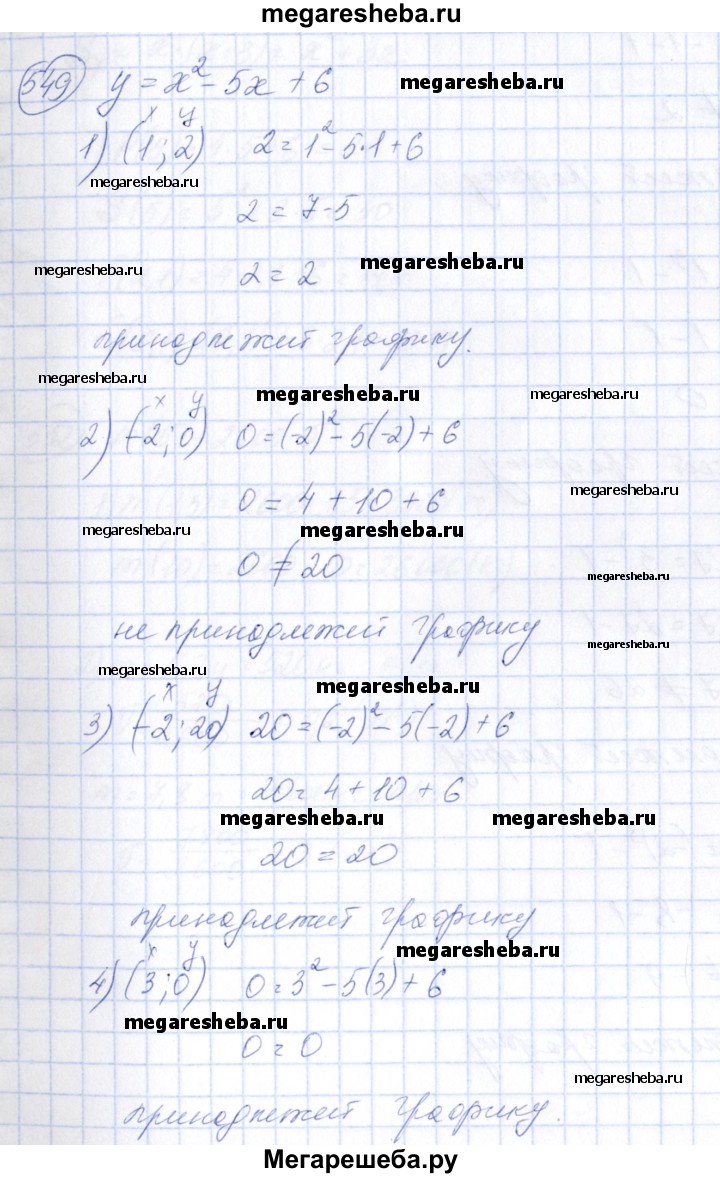 megaresheba.ru
549 y = x² - 5x + 6 megaresheba.ru
x y
1) (1; 2) 2 = 1² - 5·1 + 6
megaresheba.ru
2 = 7 - 5
megaresheba.ru 2 = 2 megaresheba.ru
принадлежит графику.
megaresheba.ru
megaresheba.ru
x y
2) (-2; 0) 0 = (-2)² - 5(-2) + 6
0 = 4 + 10 + 6 megaresheba.ru
megaresheba.ru megaresheba.ru
0 ≠ 20 megaresheba.ru
не принадлежит графику megaresheba.ru
megaresheba.ru
megaresheba.ru
x y
3) (-2; 20) 20 = (-2)² - 5(-2) + 6
20 = 4 + 10 + 6
megaresheba.ru megaresheba.ru
20 = 20
принадлежит графику
megaresheba.ru
x y
4) (3; 0) 0 = 3² - 5(3) + 6
megaresheba.ru
0 = 0
megaresheba.ru
принадлежит графику.
Мегарешеба.ру